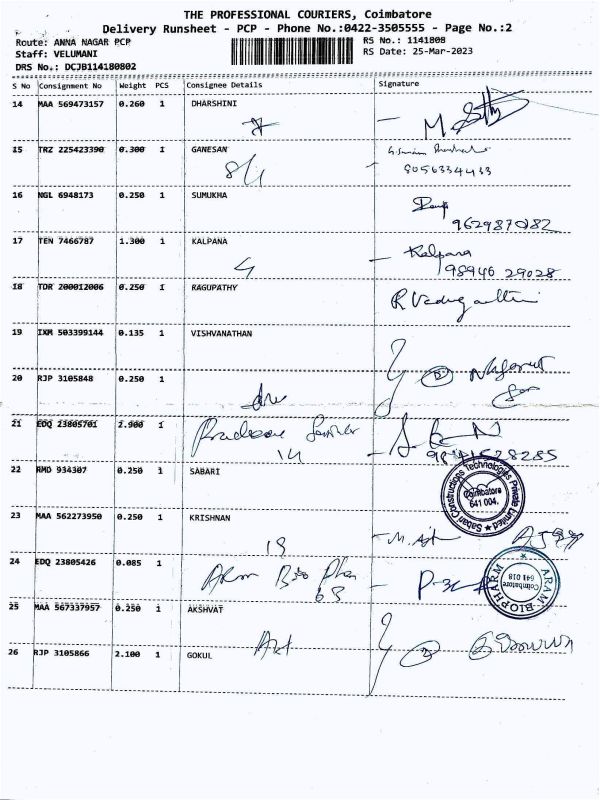 THE PROFESSIONAL COURIERS, Coimbatore
Delivery Runsheet - PCP - Phone No.:0422-3505555 - Page No.:2
Route: ANNA NAGAR PCP RS No.: 1141808
Staff: VELUMANI RS Date: 25-Mar-2023
DRS No.: DCJB114180802
S No Consignment No Weight PCS Consignee Details Signature
14 MAA 569473157 0.260 1 DHARSHINI
15 TRZ 225423390 0.300 1 GANESAN
8056334433
16 NGL 6948173 0.250 1 SUMUKHA
9629870182
17 TEN 7466787 1.300 1 KALPANA Kalpana
98946 29028
18 TDR 200012006 0.250 1 RAGUPATHY
19 IXM 503399144 0.135 1 VISHVANATHAN
20 RJP 3105848 0.250 1
21 EDQ 23805701 2.900 1
14
22 RMD 934307 0.250 1 SABARI
Sabari Constructions Technologies Private Limited
Coimbatore
641 004.
23 MAA 562273950 0.250 1 KRISHNAN
24 EDQ 23805426 0.085 1
63
ARAM BIOPHARM
Coimbatore
641 018
25 MAA 567337957 0.250 1 AKSHVAT
26 RJP 3105866 2.100 1 GOKUL